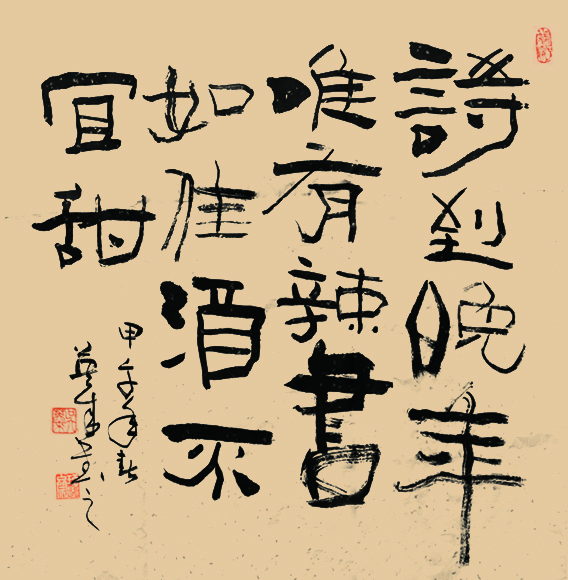 詩到晚年
唯有辣書
如佳酒不
宜甜
甲午年春